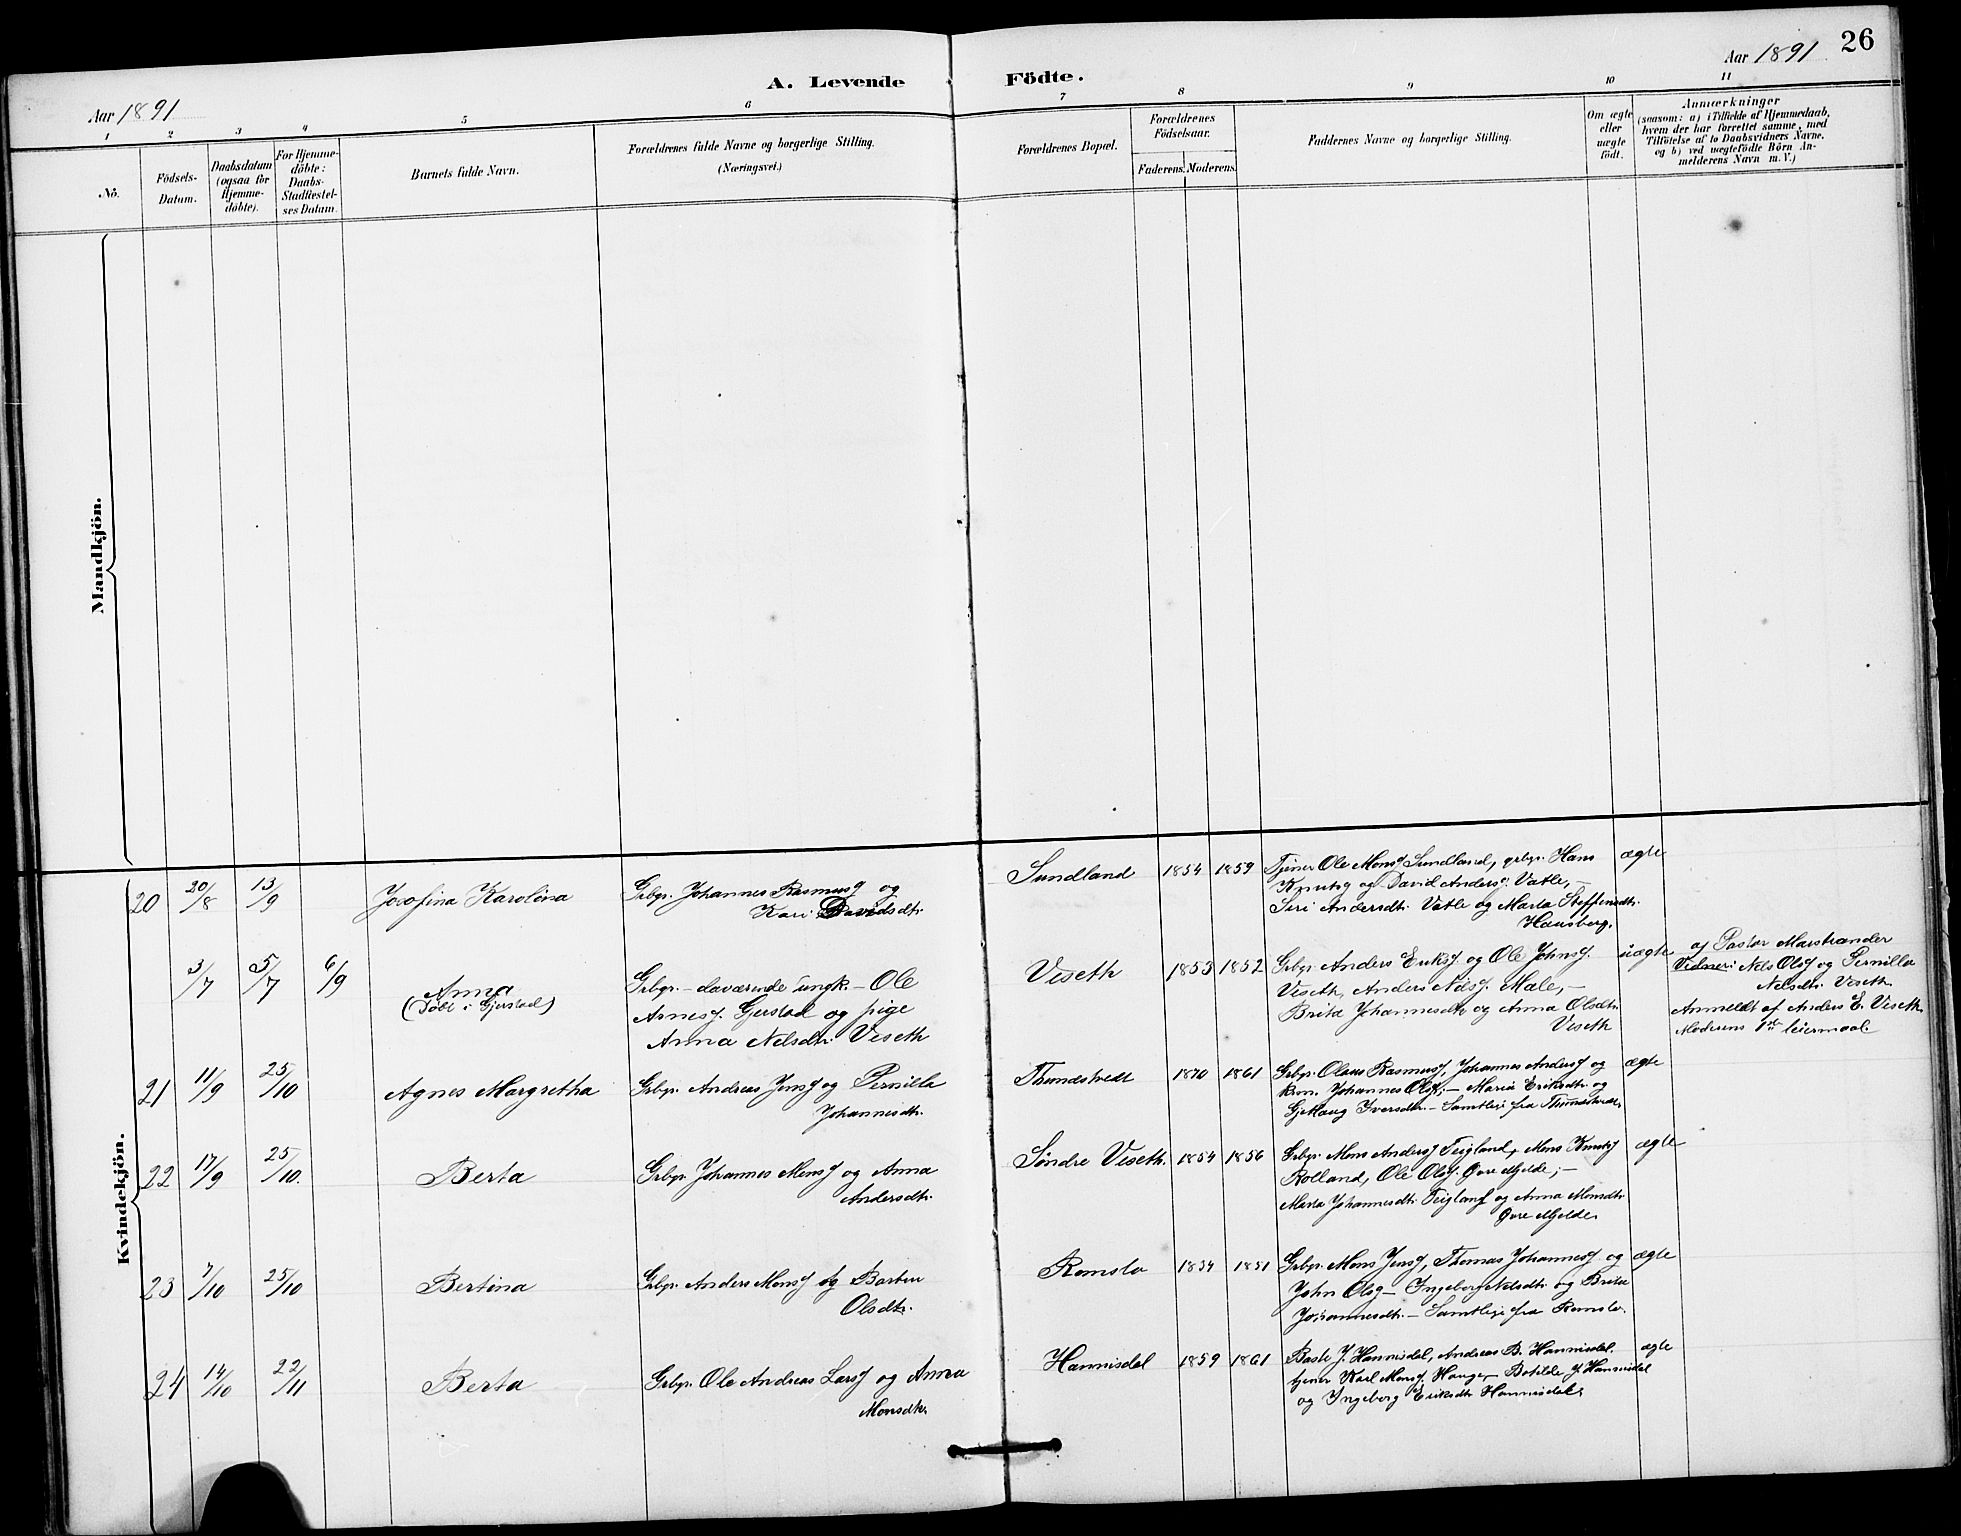 26
Aar 1891
A. Levende Födte.
Aar 1891
1 2 3 4 5 6 7 8 9 10 11
No.
Födsels-
Datum.
Daabsdatum
(ogsaa for
Hjemme-
döbte).
For Hjemme-
döbte:
Daabs-
Stadfæstel-
ses Datum.
Barnets fulde Navn.
Forældrenes fulde Navne og borgerlige Stilling.
(Næringsvei.)
Forældrenes Bopæl.
Forældrenes
Födselsaar.
Faderens. Moderens.
Faddernes Navne og borgerlige Stilling.
Om ægte
eller
uægte
födt.
Anmærkninger
(saasom: a) i Tilfælde af Hjemmedaab,
hvem der har forrettet samme, med
Tilföielse af to Daabsvidners Navne.
og b) ved uægtefödte Börn An-
melderens Navn m. V.)
Mandkjön.
Kvindekjön.
20 20/8 13/9 Josefina Karolina
Grbgr. Johannes Rasmuss og
Kari Davidsdtr.
Sundland 1854 1859
Tjener Ole Monss Sundland, grbgr. Hans
Knuts og David Anders. Vatle, –
Siri Andersdtr. Vatle og Marta Steffensdtr.
Hausberg.
ægte
3/7 5/7 6/9 Anna
(Døbt i Gjerstad)
Grbgr. – daværende ungk. – Ole
Arnes. Gjerstad og pige
Anna Nelsdtr. Viseth
Viseth 1853 1852
Grbgr. Anders Eriks. og Ole Johns.
Viseth, Anders Nils. Male, –
Brita Johannesdtr og Anna Olsdtr.
Viseth
uægte
af Pastor Marstrander
Vidner: Nels Ols og Pernilla
Nelsdtr. Viseth.
Anmeldt af Anders E. Viseth.
Moderens 1ste leiermaal.
21 11/9 25/10 Agnes Margretha
Grbgr. Andreas Jenss og Pernilla
Johannesdtr.
Thunestvedt 1870 1861
Grbgr. Olaus Rasmuss, Johannes Anderss og
Johannes Ols. – Maria Eriksdtr. og
Iversdtr. – Samtlige fra Thunestvedt.
ægte
22 17/9 25/10. Berta
Grbgr. Johannes Monss og Anna
Andersdtr.
Søndre Viseth. 1854 1856
Grbgr. Mons Anderss Teigland, Mons Knuts
Rolland, Ole Ols. Øvre Mjelde; –
Marta Johannesdtr. Teigland og Anna Monsdtr.
Øvre Mjelde.
ægte
23 7/10 25/10 Bertina
Grbgr. Anders Monss og
Olsdtr.
Romslo 1854 1851
Grbgr. Mons Jenss, Thomas Johanness. og
John Ols – Ingeborg Nelsdtr. og Brita
Johannesdtr. – Samtlige fra Romslo.
ægte
24 14/10 22/11 Berta
Grbgr. Ole Andreas Larss og Anna
Monsdtr.
Hannisdal 1859 1861
J. Hannisdal, Andreas B. Hannisdal,
tjener Karl Monss. Hauge – Botilde J. Hannisdal
og Ingeborg Eriksdtr Hannisdal.
ægte